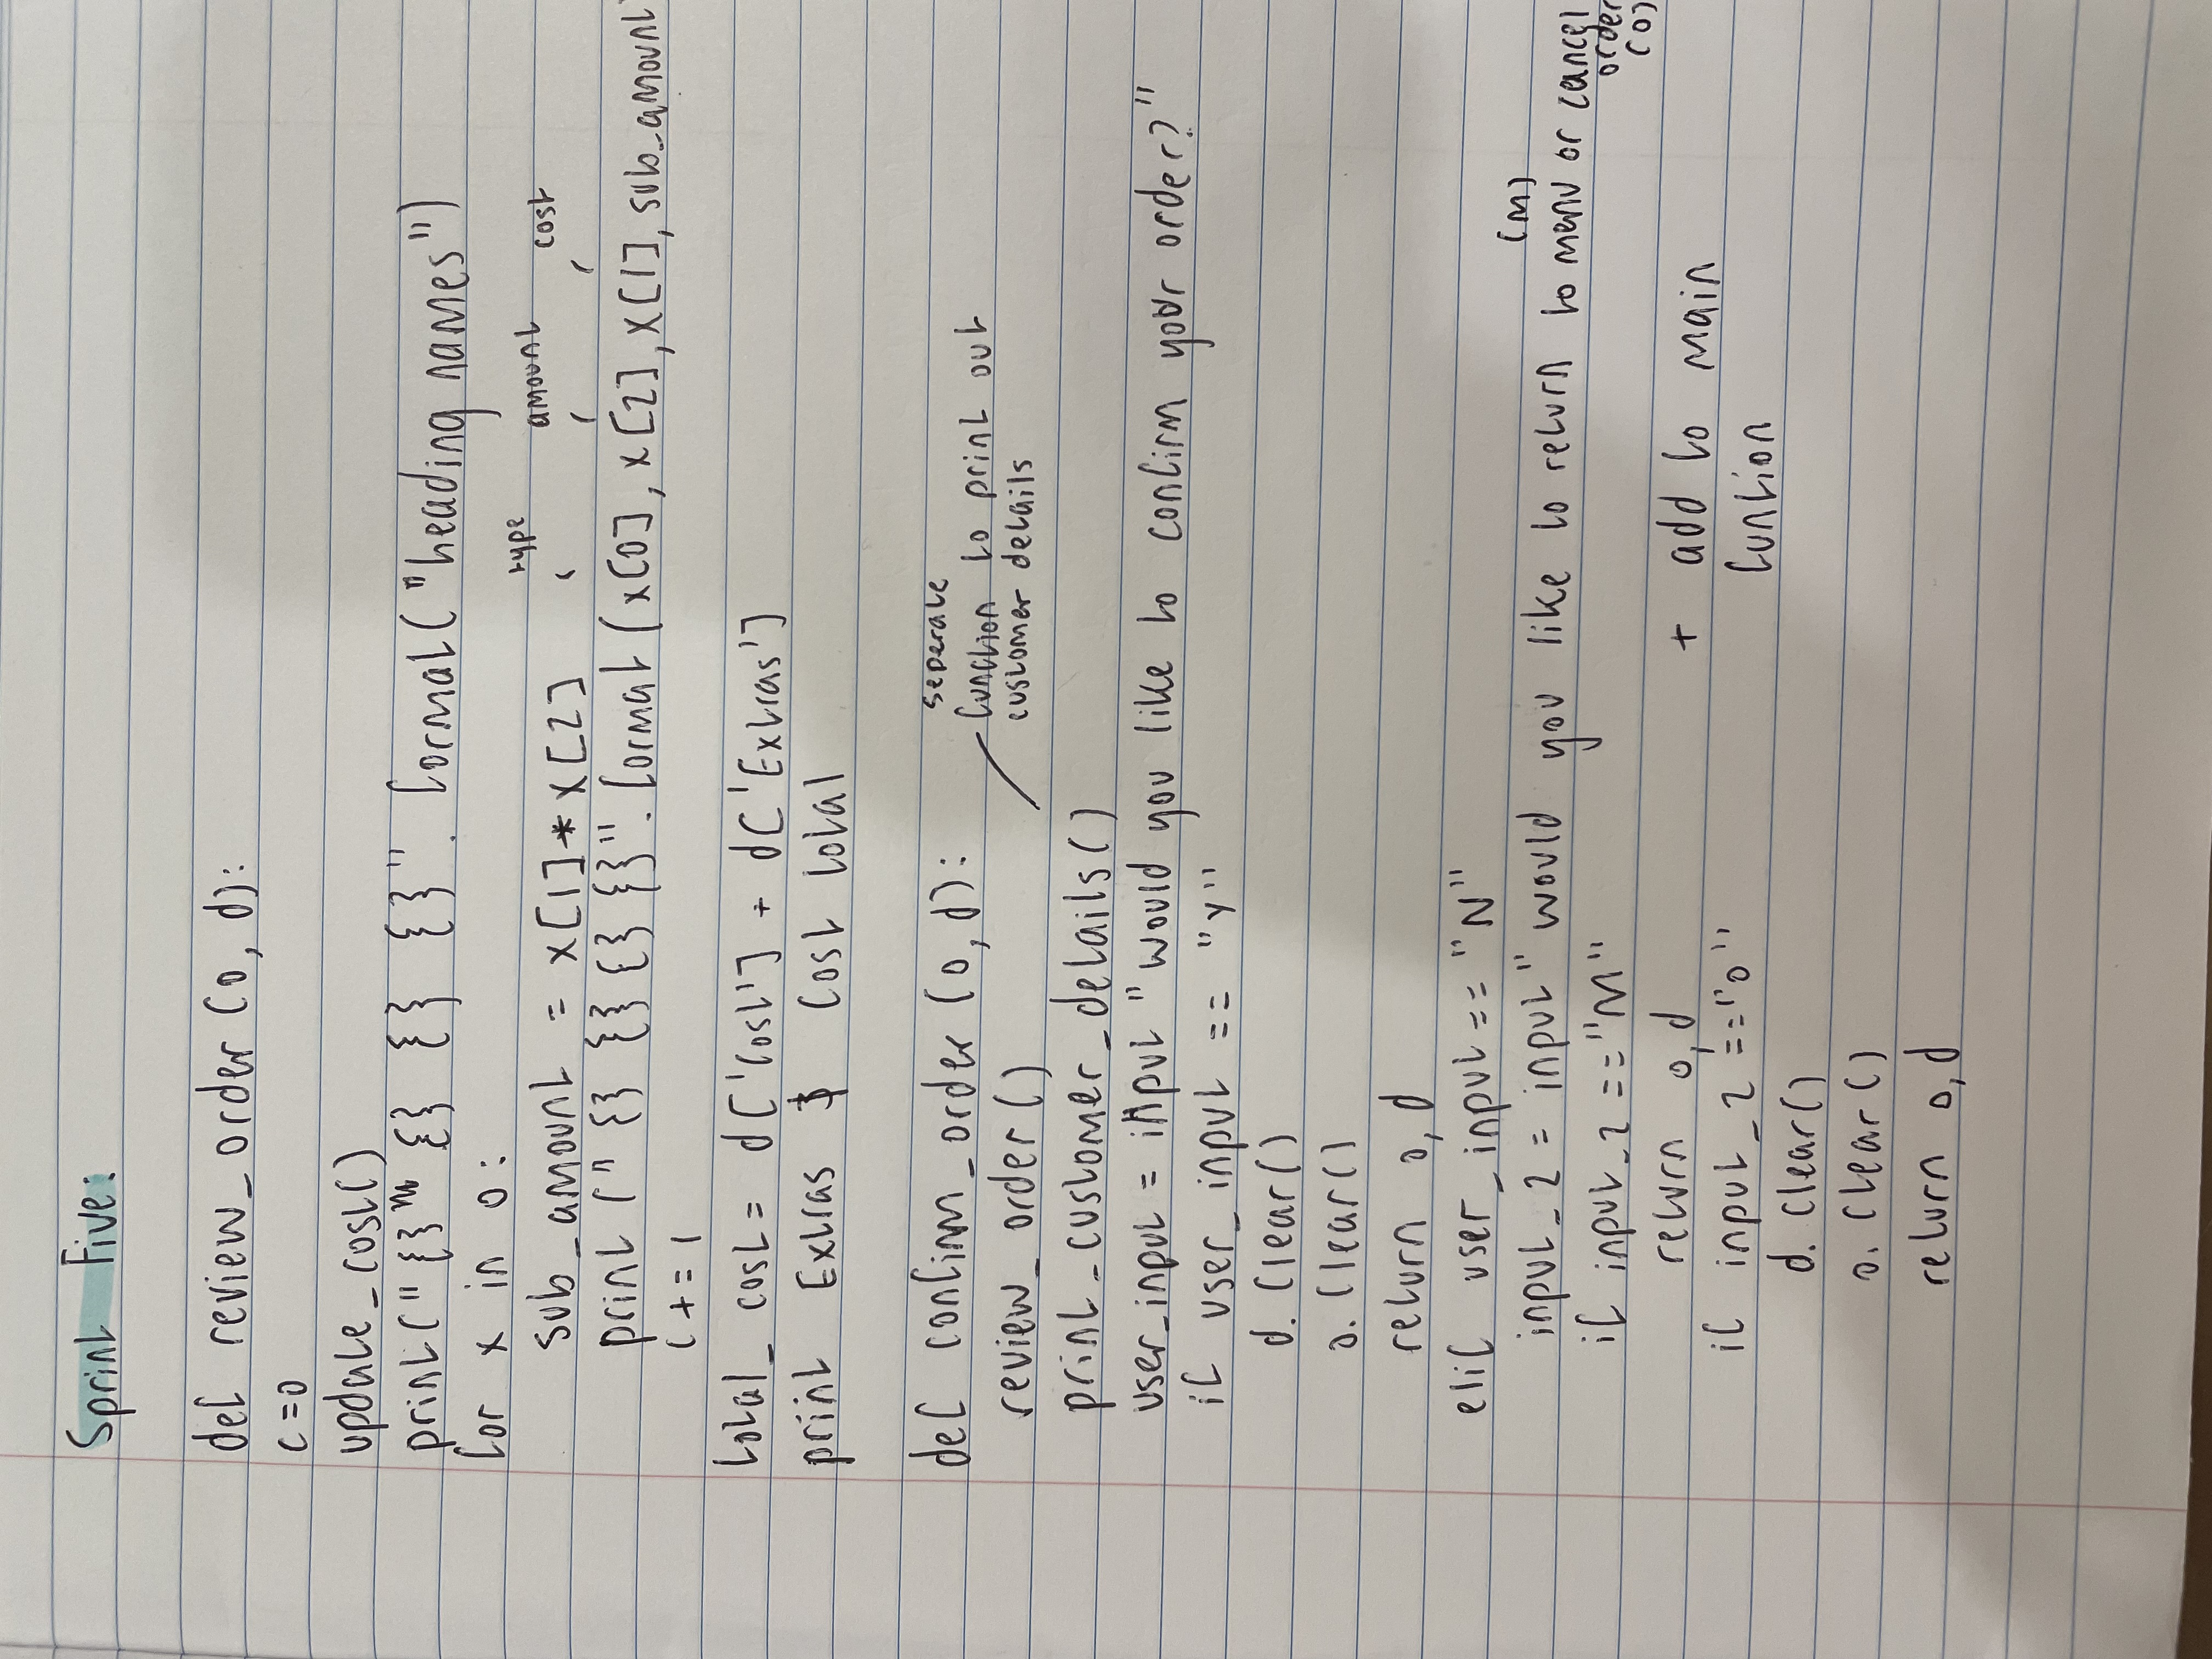 Sprint Five:
def review_order (o, d):
c=0
update_cost()
print(" {} {} {} {}". format("heading names")
for x in o:
sub_amount = x[1]*x[2]
type amount cost
print (" {} {} {} {}". format (x[0], x[2], x[1], sub_amount
c += 1
total_cost = d['Cost'] + d['Extras']
print Extras $ Cost total
def confirm_order (o, d):
seperate
function to print out
customer details
review_order()
print_customer_details()
user_input = input "would you like to confirm your order?"
if user_input == "Y"
d. clear()
o. clear()
return o, d
elif user_input == "N"
(M)
input_2 = input" would you like to return to menu or cancel
order
(O)
if input_2 =="M"
return o, d
+ add to main
funtion
if input_2 =="O"
d. clear()
o. clear()
return o, d